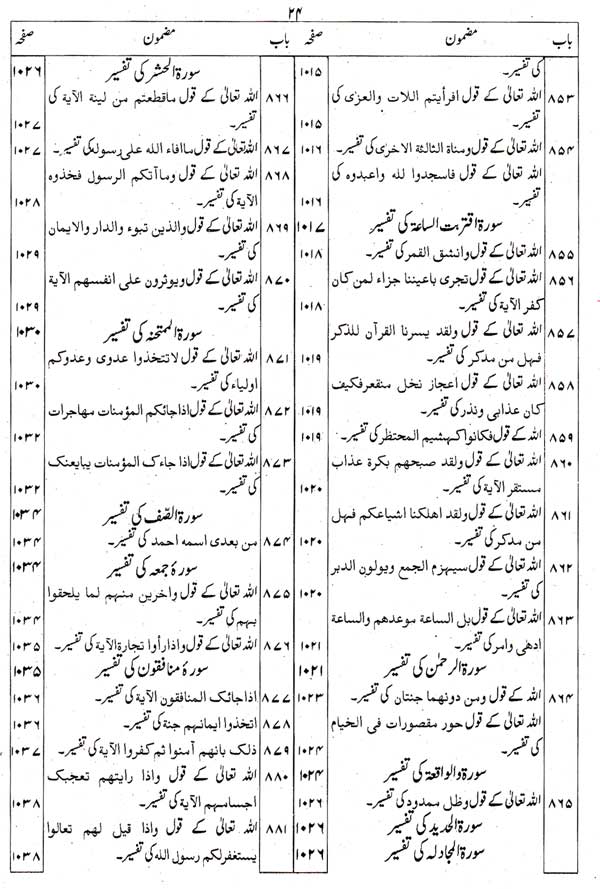 ۲۴
باب مضمون صفحہ
کی تفسیر۔ ۱۰۱۵
۸۵۳ اللہ تعالیٰ کے قول افرأیتم اللات والعزی کی
تفسیر۔ ۱۰۱۵
۸۵۴ اللہ تعالیٰ کے قول ومناة الثالثة الاخری کی تفسیر۔ ۱۰۱۶
اللہ تعالیٰ کے قول فاسجدوا لله واعبدوه کی
تفسیر۔ ۱۰۱۶
سورۃ اقتربت الساعۃ کی تفسیر ۱۰۱۷
۸۵۵ اللہ تعالیٰ کے قول وانشق القمر کی تفسیر۔ ۱۰۱۸
۸۵۶ اللہ تعالیٰ کے قول تجری باعیننا جزاء لمن کان
کفر الآیة کی تفسیر۔ ۱۰۱۸
۸۵۷ اللہ تعالیٰ کے قول ولقد یسرنا القرآن للذکر
فہل من مدکر کی تفسیر۔ ۱۰۱۹
۸۵۸ اللہ تعالیٰ کے قول اعجاز نخل منقعر فکیف
کان عذابی ونذر کی تفسیر۔ ۱۰۱۹
۸۵۹ اللہ کے قول فکانوا کہشیم المحتظر کی تفسیر۔ ۱۰۱۹
۸۶۰ اللہ تعالیٰ کے قول ولقد صبحہم بکرة عذاب
مستقر الآیة کی تفسیر۔ ۱۰۲۰
۸۶۱ اللہ تعالیٰ کے قول ولقد اهلکنا اشیاعکم فہل
من مدکر کی تفسیر۔ ۱۰۲۰
۸۶۲ اللہ تعالیٰ کے قول سیہزم الجمع ویولون الدبر
کی تفسیر۔ ۱۰۲۰
۸۶۳ اللہ تعالیٰ کے قول بل الساعة موعدهم والساعة
ادهی وامر کی تفسیر۔ ۱۰۲۱
سورۃ الرحمٰن کی تفسیر ۱۰۲۱
۸۶۴ اللہ کے قول ومن دونہما جنتان کی تفسیر۔ ۱۰۲۳
اللہ تعالیٰ کے قول حور مقصورات فی الخیام
کی تفسیر۔ ۱۰۲۴
سورۃ والواقعۃ کی تفسیر ۱۰۲۴
۸۶۵ اللہ تعالیٰ کے قول وظل ممدود کی تفسیر۔ ۱۰۲۶
سورۃ الحدید کی تفسیر ۱۰۲۶
سورۃ المجادلہ کی تفسیر ۱۰۲۶
باب مضمون صفحہ
سورۃ الحشر کی تفسیر ۱۰۲۶
۸۶۶ اللہ تعالیٰ کے قول ماقطعتم من لینة الآیة کی
تفسیر۔ ۱۰۲۷
۸۶۷ اللہ تعالیٰ کے قول ماافاء الله علی رسوله کی تفسیر۔ ۱۰۲۷
۸۶۸ اللہ تعالیٰ کے قول وماآتکم الرسول فخذوه
الآیة کی تفسیر۔ ۱۰۲۸
۸۶۹ اللہ تعالیٰ کے قول والذین تبوء والدار والایمان
کی تفسیر۔ ۱۰۲۹
۸۷۰ اللہ تعالیٰ کے قول ویوثرون علی انفسہم الآیة
کی تفسیر۔ ۱۰۲۹
سورۃ الممتحنہ کی تفسیر ۱۰۳۰
۸۷۱ اللہ تعالیٰ کے قول لاتتخذوا عدوی وعدوکم
اولیاء کی تفسیر۔ ۱۰۳۰
۸۷۲ اللہ تعالیٰ کے قول اذاجائکم المؤمنات مهاجرات
کی تفسیر۔ ۱۰۳۲
۸۷۳ اللہ تعالیٰ کے قول اذا جاءک المؤمنات یبایعنک
کی تفسیر۔ ۱۰۳۲
سورۃ الصّف کی تفسیر ۱۰۳۴
۸۷۴ من بعدی اسمه احمد کی تفسیر۔ ۱۰۳۴
سورۂ جمعہ کی تفسیر ۱۰۳۴
۸۷۵ اللہ تعالیٰ کے قول واخرین منہم لما یلحقوا
بہم کی تفسیر۔ ۱۰۳۴
۸۷۶ اللہ تعالیٰ کے قول واذارأوا تجارة الآیة کی تفسیر۔ ۱۰۳۵
سورۂ منافقون کی تفسیر ۱۰۳۵
۸۷۷ اذاجائک المنافقون الآیة کی تفسیر۔ ۱۰۳۶
۸۷۸ اتخذوا ایمانہم جنة کی تفسیر۔ ۱۰۳۶
۸۷۹ ذلک بانہم آمنوا ثم کفروا الآیة کی تفسیر۔ ۱۰۳۷
۸۸۰ اللہ تعالیٰ کے قول واذا رایتهم تعجبک
اجسامہم الآیة کی تفسیر۔ ۱۰۳۸
۸۸۱ اللہ تعالیٰ کے قول واذا قیل لهم تعالوا
یستغفرلکم رسول الله کی تفسیر۔ ۱۰۳۸